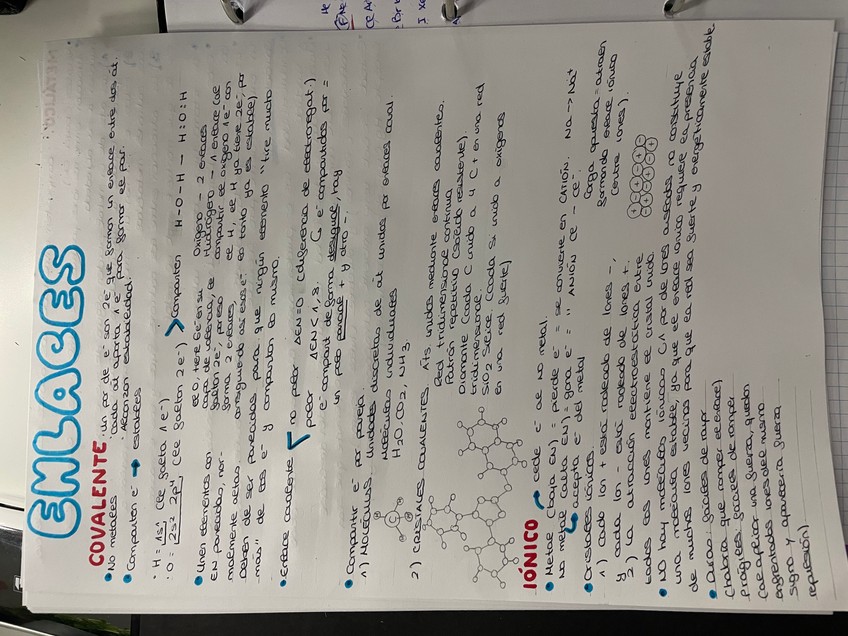 ENLACES
COVALENTE
· un par de e⁻ son 2e⁻ que forman un enlace entre dos át.
cada át aporta 1 e⁻ para formar el par.
· Alcanzan estabilidad.
• No metales
• Comparten e⁻ → estables
· H = 1s¹ (le falta 1 e⁻)
· O = 2s² 2p⁴ (le faltan 2e⁻)
> Comparten H-O-H — H:O:H
• Unen elementos con
EN parecidas, nor-
malmente altas.
Deben de ser parecidas para que ningún elemento "tire mucho
más" de los e⁻ y compartan lo mismo.
el O, tiene 6e⁻ en su
capa de valencia, le
faltan 2e⁻, por eso
forma 2 enlaces,
consiguiendo así esos e⁻
Oxígeno – 2 enlaces
Hidrógeno – 1 enlace (al
compartir el oxígeno 1e⁻ con
el H, el H ya tiene 2e⁻, por
lo tanto ya es estable)
• Enlace covalente
no polar ΔEN=0 (diferencia de electronegat.)
polar ΔEN < 1,8.
e⁻ compart. de forma desigual, hay
un polo parcial + y otro -.
e⁻ compartidos por =
• Compartir e⁻ por pareja.
1) MOLÉCULAS. Unidades discretas de át unidos por enlaces coval.
Moléculas individuales
H2O, CO2, NH3.
2) CRISTALES COVALENTES. Áts unidos mediante enlaces covalentes.
Red tridimensional continua
Patrón repetitivo (sólido resistente).
Diamante (cada C unido a 4 C + en una red
tridimensional.
SiO2 Sílice (cada Si unido a oxígenos
en una red fuerte)
IÓNICO
cede e⁻ al NO metal.
• Metal (baja EN) = pierde e⁻ = se convierte en CATIÓN. Na → Na⁺
No metal (alta EN) = gana e⁻ = " ANIÓN Cl – Cl⁻.
acepta e⁻ del metal
Carga opuesta = atraen
formando enlace iónico
(entre iones).
• Cristales iónicos.
1) cada ion + está rodeado de iones -,
y cada ion - está rodeado de iones +.
2) La atracción electroestática entre
todos los iones mantiene el cristal unido.
+ - + - +
- + - + -
+ - + - +
• NO hay moléculas iónicas (1 par de iones aislados no constituye
una molécula estable, ya que el enlace iónico requiere la presencia
de muchos iones vecinos para que la red sea fuerte y energéticamente estable.
• Duros: difíciles de rayar
(habría que romper el enlace)
Frágiles: fáciles de romper
(al aplicar una fuerza, quedan
enfrentados iones del mismo
signo y aparecería fuerza
repulsión)